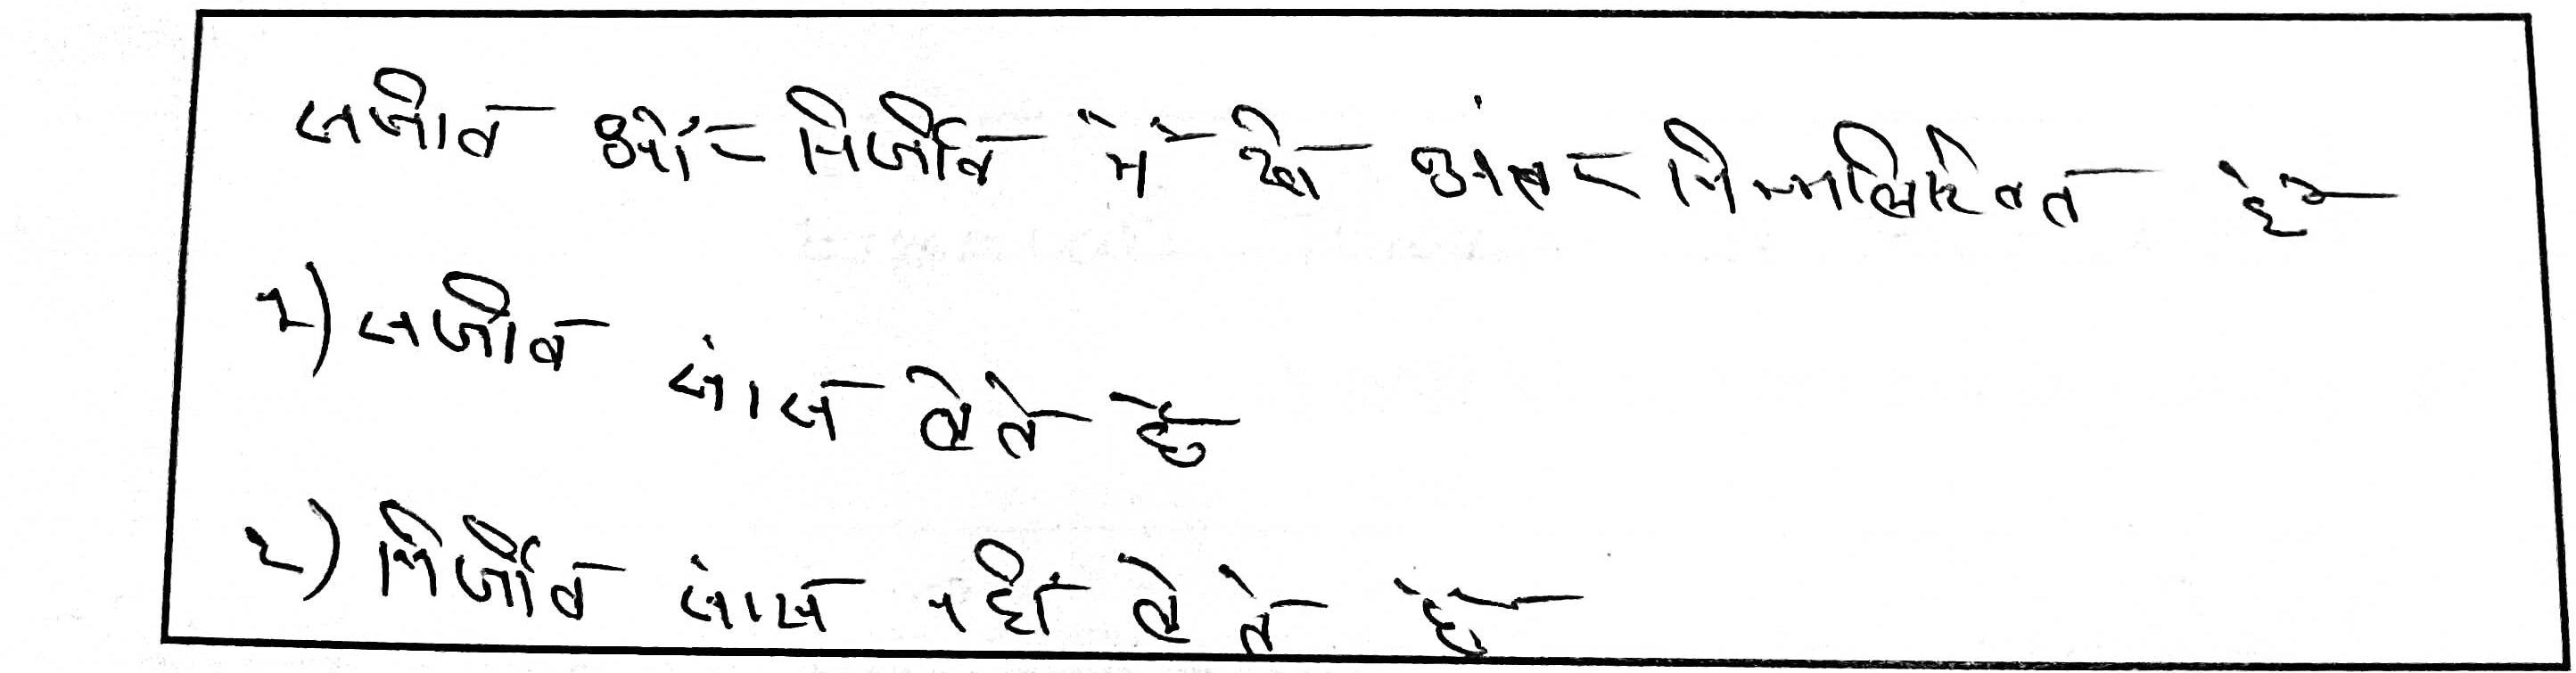 सजीव और निर्जीव में अंतर निम्नलिखित है
1) सजीव सांस लेते है
2) निर्जीव सांस नहीं लेते है